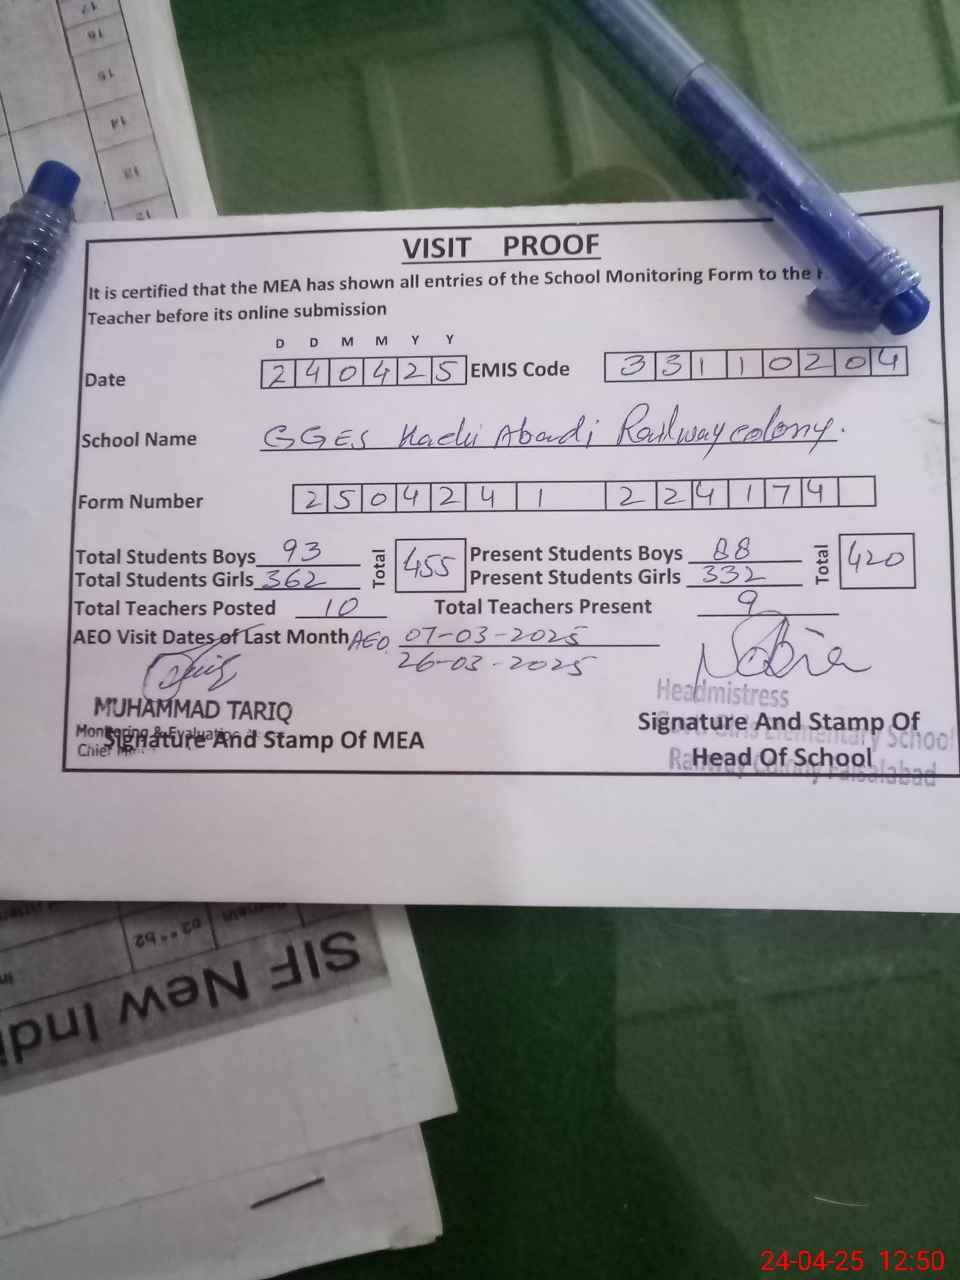 17
16
15
14
13
12
VISIT PROOF
It is certified that the MEA has shown all entries of the School Monitoring Form to the
Teacher before its online submission
D D M M Y Y
Date 2 4 0 4 2 5 EMIS Code 3 3 1 1 0 2 0 4
School Name GGES Kachi Abadi Railway colony.
Form Number 2 5 0 4 2 4 1 2 2 4 1 7 4
Total Students Boys 93 Total 455 Present Students Boys 88 Total 420
Total Students Girls 362 Present Students Girls 332
Total Teachers Posted 10 Total Teachers Present 9
AEO Visit Dates of Last Month AEO 07-03-2025
26-03-2025
Nabia
MUHAMMAD TARIQ
Monitoring & Evaluation
Chief
Signature And Stamp Of MEA
Headmistress
Govt Girls Elementary School
Railway Colony Faisalabad
Signature And Stamp Of
Head Of School
SIF New Indi
24-04-25 12:50